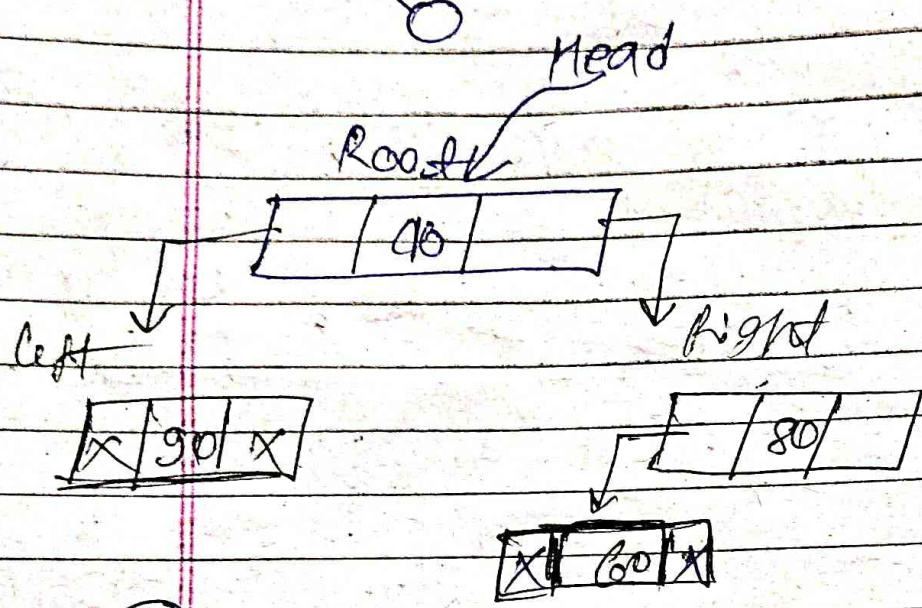 Head
Root
90
Left
Right
X 90 X
80
X 60 X